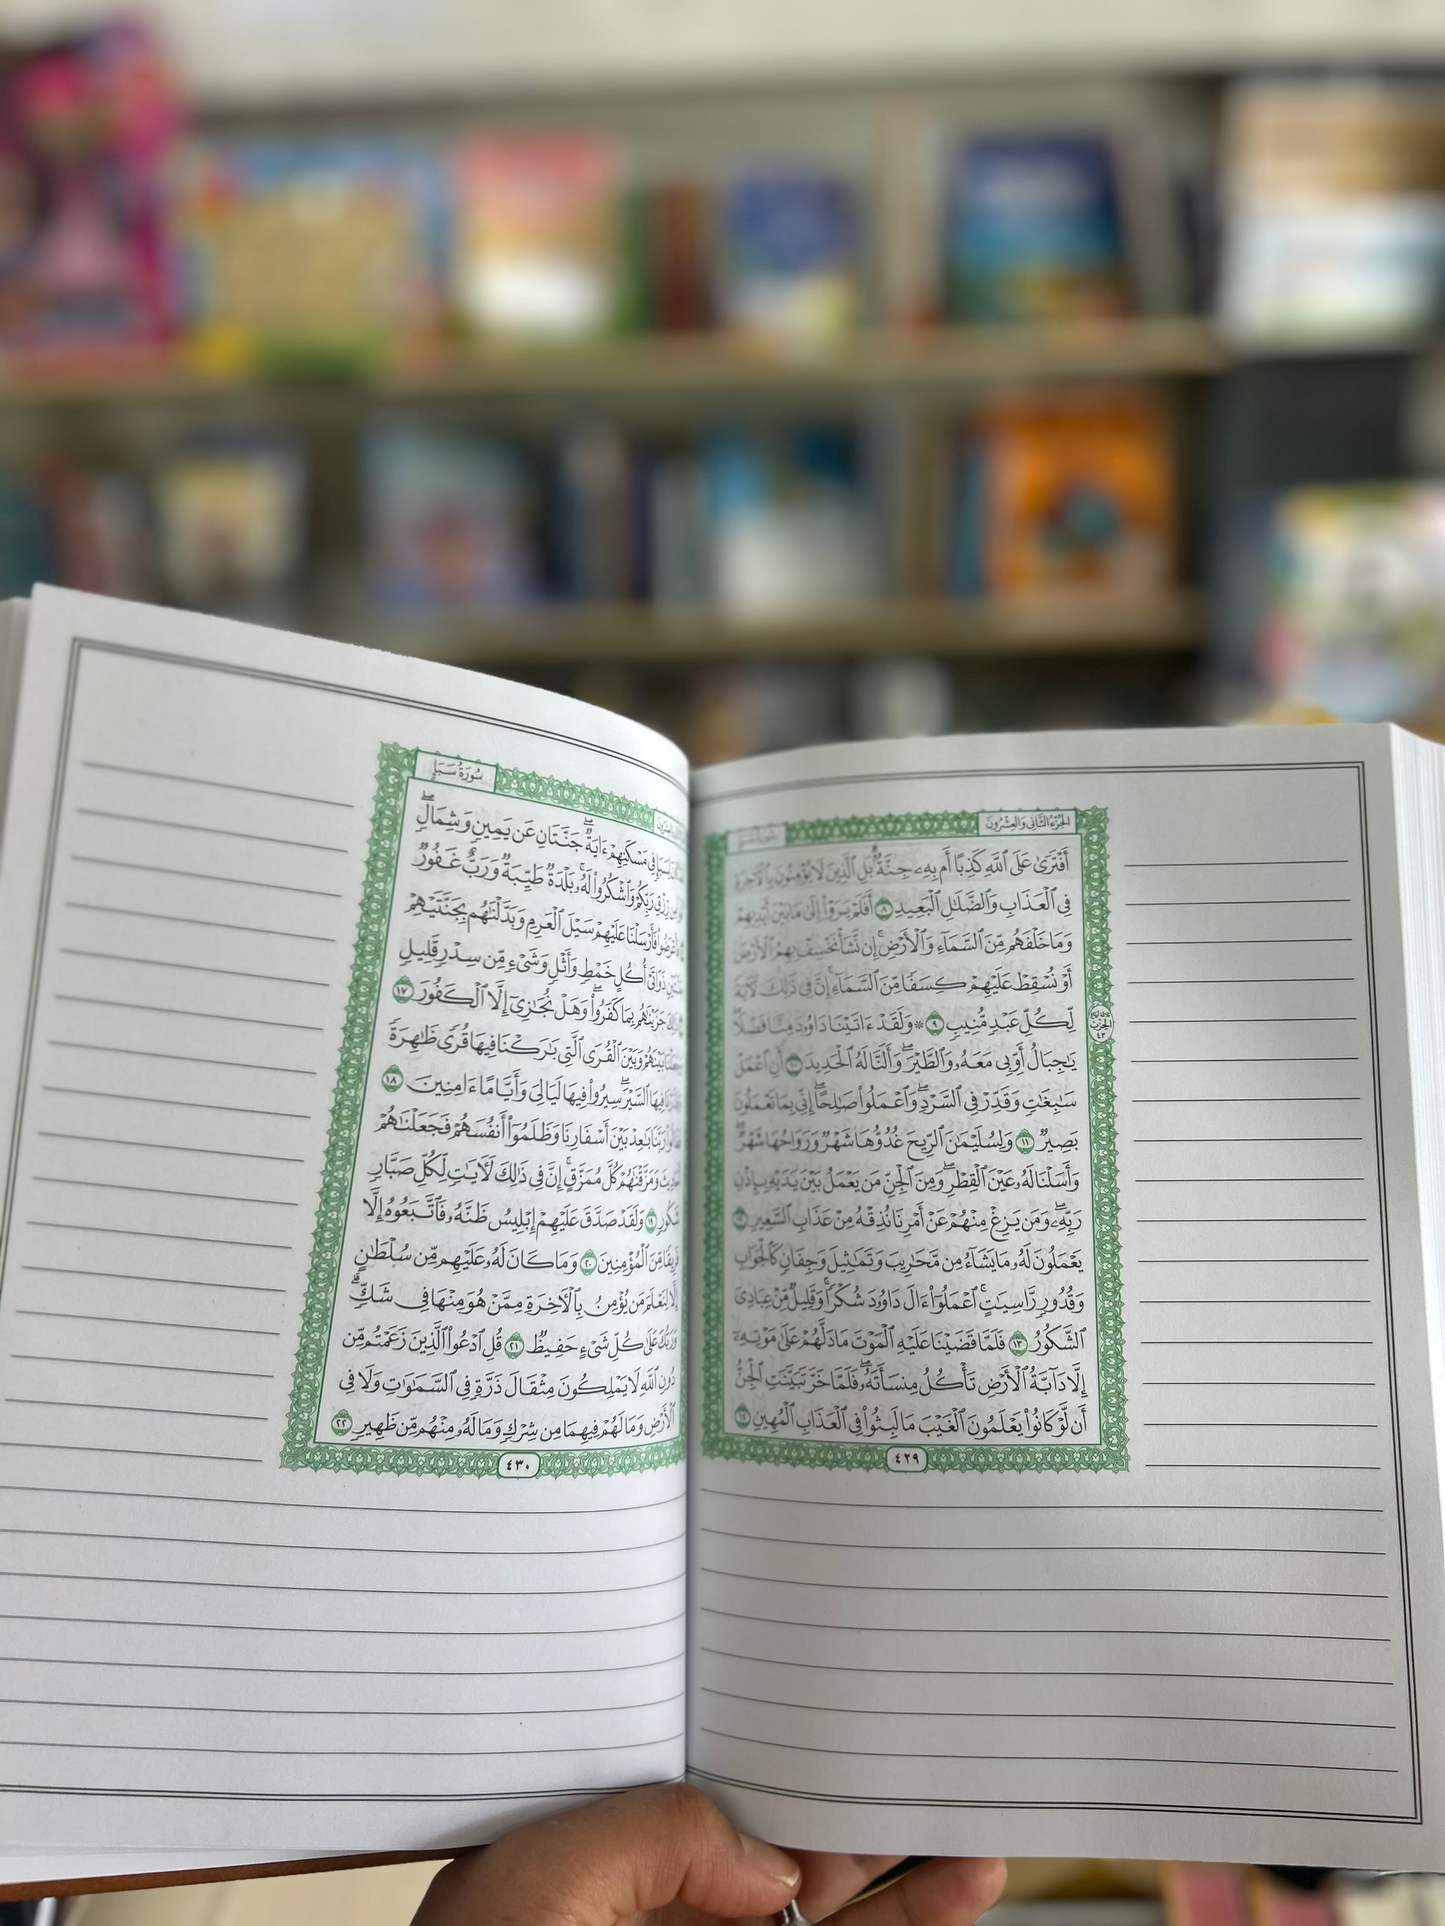 الجزء الثاني والعشرون
سورة سبإ
أَفْتَرَىٰ عَلَى ٱللَّهِ كَذِبًا أَم بِهِۦ جِنَّةٌۢ بَلِ ٱلَّذِينَ لَا يُؤْمِنُونَ بِٱلْءَاخِرَةِ
فِى ٱلْعَذَابِ وَٱلضَّلَٰلِ ٱلْبَعِيدِ ٨ أَفَلَمْ يَرَوْا۟ إِلَىٰ مَا بَيْنَ أَيْدِيهِمْ
وَمَا خَلْفَهُم مِّنَ ٱلسَّمَآءِ وَٱلْأَرْضِ ۚ إِن نَّشَأْ نَخْسِفْ بِهِمُ ٱلْأَرْضَ
أَوْ نُسْقِطْ عَلَيْهِمْ كِسَفًا مِّنَ ٱلسَّمَآءِ ۚ إِنَّ فِى ذَٰلِكَ لَءَايَةً
لِّكُلِّ عَبْدٍ مُّنِيبٍ ٩ ۞ وَلَقَدْ ءَاتَيْنَا دَاوُۥدَ مِنَّا فَضْلًا ۖ
يَٰجِبَالُ أَوِّبِى مَعَهُۥ وَٱلطَّيْرَ ۖ وَأَلَنَّا لَهُ ٱلْحَدِيدَ ١٠ أَنِ ٱعْمَلْ
سَٰبِغَٰتٍ وَقَدِّرْ فِى ٱلسَّرْدِ ۖ وَٱعْمَلُوا۟ صَٰلِحًا ۖ إِنِّى بِمَا تَعْمَلُونَ
بَصِيرٌ ١١ وَلِسُلَيْمَٰنَ ٱلرِّيحَ غُدُوُّهَا شَهْرٌ وَرَوَاحُهَا شَهْرٌ ۖ
وَأَسَلْنَا لَهُۥ عَيْنَ ٱلْقِطْرِ ۖ وَمِنَ ٱلْجِنِّ مَن يَعْمَلُ بَيْنَ يَدَيْهِ بِإِذْنِ
رَبِّهِۦ ۖ وَمَن يَزِغْ مِنْهُمْ عَنْ أَمْرِنَا نُذِقْهُ مِنْ عَذَابِ ٱلسَّعِيرِ ١٢
يَعْمَلُونَ لَهُۥ مَا يَشَآءُ مِن مَّحَٰرِيبَ وَتَمَٰثِيلَ وَجِفَانٍ كَٱلْجَوَابِ
وَقُدُورٍ رَّاسِيَٰتٍ ۚ ٱعْمَلُوٓا۟ ءَالَ دَاوُۥدَ شُكْرًا ۚ وَقَلِيلٌ مِّنْ عِبَادِىَ
ٱلشَّكُورُ ١٣ فَلَمَّا قَضَيْنَا عَلَيْهِ ٱلْمَوْتَ مَا دَلَّهُمْ عَلَىٰ مَوْتِهِۦٓ
إِلَّا دَآبَّةُ ٱلْأَرْضِ تَأْكُلُ مِنسَأَتَهُۥ ۖ فَلَمَّا خَرَّ تَبَيَّنَتِ ٱلْجِنُّ
أَن لَّوْ كَانُوا۟ يَعْلَمُونَ ٱلْغَيْبَ مَا لَبِثُوا۟ فِى ٱلْعَذَابِ ٱلْمُهِينِ ١٤
٤٢٩
سُورَةُ سَبَإٍ
لِسَبَإٍ فِى مَسْكَنِهِمْ ءَايَةٌ ۖ جَنَّتَانِ عَن يَمِينٍ وَشِمَالٍ ۖ
مِن رِّزْقِ رَبِّكُمْ وَٱشْكُرُوا۟ لَهُۥ ۚ بَلْدَةٌ طَيِّبَةٌ وَرَبٌّ غَفُورٌ
فَأَرْسَلْنَا عَلَيْهِمْ سَيْلَ ٱلْعَرِمِ وَبَدَّلْنَٰهُم بِجَنَّتَيْهِمْ
ذَوَاتَىْ أُكُلٍ خَمْطٍ وَأَثْلٍ وَشَىْءٍ مِّن سِدْرٍ قَلِيلٍ
جَزَيْنَٰهُم بِمَا كَفَرُوا۟ ۖ وَهَلْ نُجَٰزِىٓ إِلَّا ٱلْكَفُورَ ١٧
بَيْنَهُمْ وَبَيْنَ ٱلْقُرَى ٱلَّتِى بَٰرَكْنَا فِيهَا قُرًى ظَٰهِرَةً
فِيهَا ٱلسَّيْرَ ۖ سِيرُوا۟ فِيهَا لَيَالِىَ وَأَيَّامًا ءَامِنِينَ ١٨
رَبَّنَا بَٰعِدْ بَيْنَ أَسْفَارِنَا وَظَلَمُوٓا۟ أَنفُسَهُمْ فَجَعَلْنَٰهُمْ
وَمَزَّقْنَٰهُمْ كُلَّ مُمَزَّقٍ ۚ إِنَّ فِى ذَٰلِكَ لَءَايَٰتٍ لِّكُلِّ صَبَّارٍ
شَكُورٍ ١٩ وَلَقَدْ صَدَّقَ عَلَيْهِمْ إِبْلِيسُ ظَنَّهُۥ فَٱتَّبَعُوهُ إِلَّا
فَرِيقًا مِّنَ ٱلْمُؤْمِنِينَ ٢٠ وَمَا كَانَ لَهُۥ عَلَيْهِم مِّن سُلْطَٰنٍ
إِلَّا لِنَعْلَمَ مَن يُؤْمِنُ بِٱلْءَاخِرَةِ مِمَّنْ هُوَ مِنْهَا فِى شَكٍّ ۗ
وَرَبُّكَ عَلَىٰ كُلِّ شَىْءٍ حَفِيظٌ ٢١ قُلِ ٱدْعُوا۟ ٱلَّذِينَ زَعَمْتُم مِّن
دُونِ ٱللَّهِ لَا يَمْلِكُونَ مِثْقَالَ ذَرَّةٍ فِى ٱلسَّمَٰوَٰتِ وَلَا فِى
ٱلْأَرْضِ وَمَا لَهُمْ فِيهِمَا مِن شِرْكٍ وَمَا لَهُۥ مِنْهُم مِّن ظَهِيرٍ ٢٢
٤٣٠